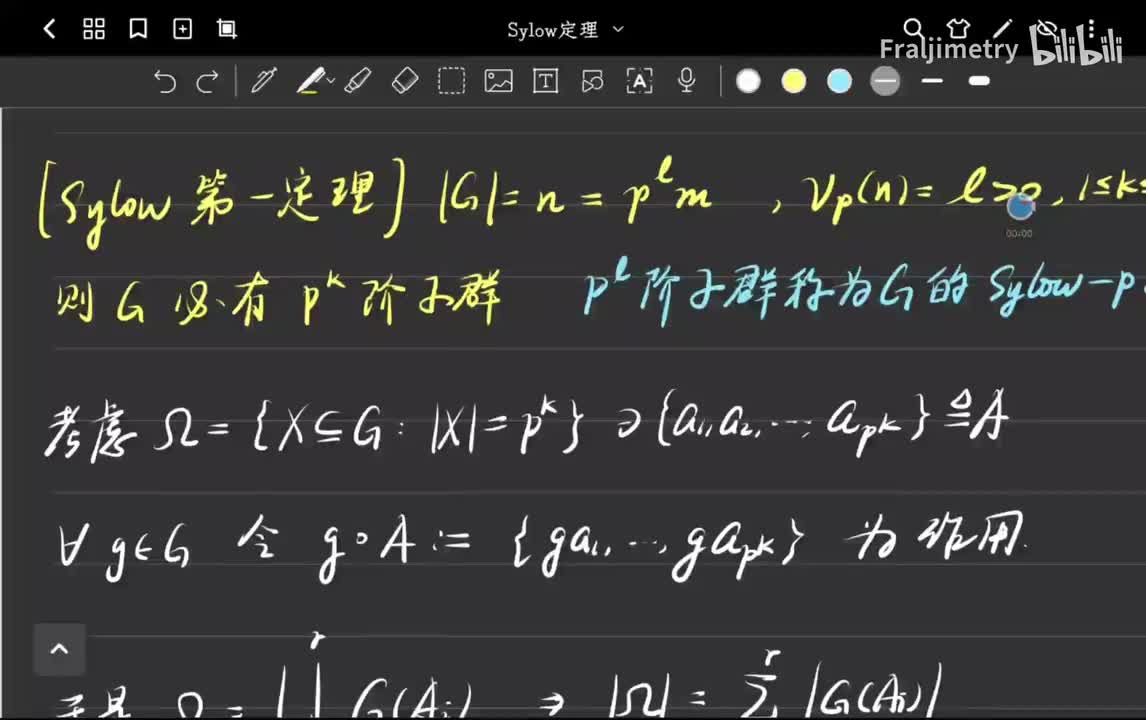 Sylow定理
Fraljimetry bilibili
[Sylow 第一定理] |G| = n = p^l m , ν_p(n) = l > 0, 1 ≤ k ≤
00:00
则 G 必有 p^k 阶子群 p^l 阶子群称为 G 的 Sylow-p
考虑 Ω = {X ⊆ G : |X| = p^k} ∋ {a_1, a_2, ..., a_{p^k}} ≜ A
∀ g ∈ G 令 g∘A := {ga_1, ..., ga_{p^k}} 为作用.
于是 Ω = ∐^r G(A_i) ⇒ |Ω| = Σ^r |G(A_i)|